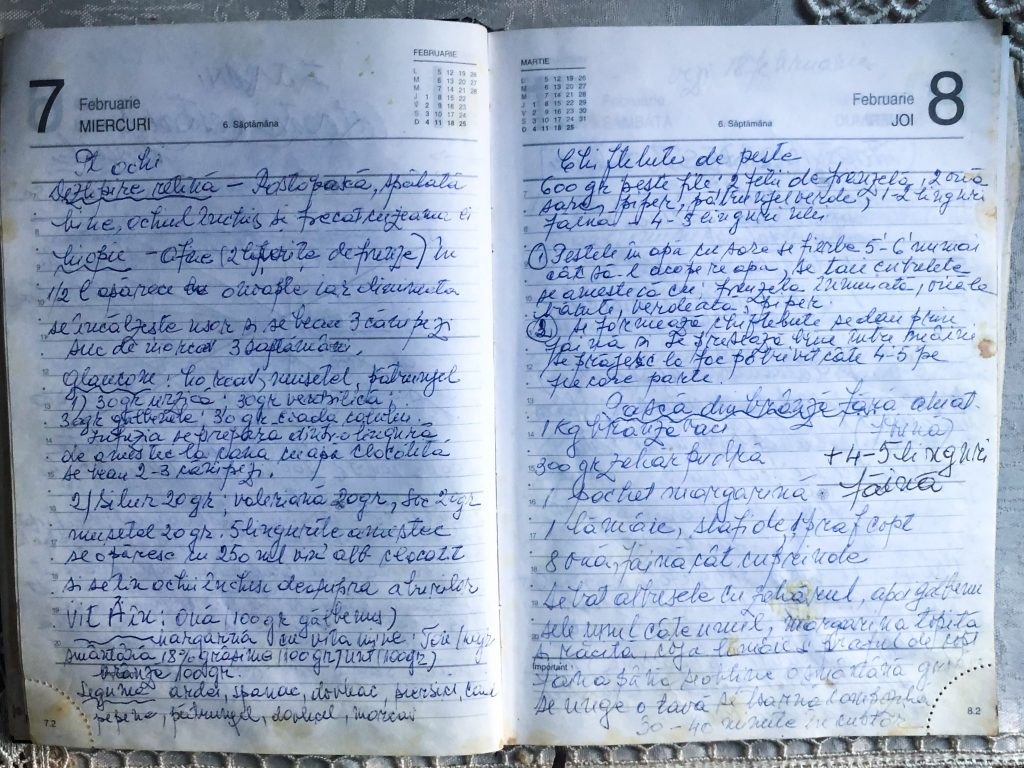 7
Februarie
MIERCURI
6. Săptămâna
FEBRUARIE
L 5 12 19 26
M 6 13 20 27
M 7 14 21 28
J 1 8 15 22
V 2 9 16 23
S 3 10 17 24
D 4 11 18 25
ochi
Dezlipire retină - spălată
bine, ochiul închis si frecat
Miopie - Afine (2 de frunze) în
1/2 l apa noapte iar dimineata
se încălzeste usor si se beau 3 căni pe zi
suc de morcov 3 săptămâni.
Glaucom: morcov, musetel, pătrunjel
1) 30 gr urzica: 30 gr
30 gr galbenele: 30 gr coada
Infuzia se prepară dintr-o lingură
de amestec la cana cu apa clocotita
se beau 2-3 cani pe zi.
2) Silur 20 gr, valeriană 20 gr, soc 20 gr
musetel 20 gr. 5 lingurite amestec
se opăresc cu 250 ml vin alb clocotit
si se tin ochii închisi deasupra aburilor
Vit A în: Ouă (100 gr gălbenus)
margarină cu vitamine:
smântână 18% grăsime (100 gr) unt (100 gr)
brânză 100 gr.
Legume ardei, spanac, dovleac, piersici,
pepene, pătrunjel, dovlecel, morcov
7.2
MARTIE
L 5 12 19 26
M 6 13 20 27
M 7 14 21 28
J 1 8 15 22 29
V 2 9 16 23 30
S 3 10 17 24 31
D 4 11 18 25
6. Săptămâna
Februarie
JOI
8
Chiftelute de peste
600 gr peste file: 2 felii de franzela, 2 ouă
sare, piper, pătrunjel verde, 1-2 linguri
faină 4-5 linguri ulei
1. Pestele în apă cu sare se fierbe 5'-6' numai
cât să-l acopere apa, se taie cubulete
se amestecă cu: franzela înmuiată, ouăle
bătute, verdeata, piper.
2. Se formează chiftelute se dau prin
faină si se presează bine între mâini
se prăjesc la foc potrivit câte 4-5 pe
fiecare parte.
Pască din brânză fără aluat
1 kg brânză vaci (făină)
300 gr zahar pudră + 4-5 linguri
1 pachet margarină făină
1 lămâie, stafide, praf copt
8 ouă, făină cât cuprinde
Se bat albusele cu zahărul, apoi gălbenu
sele unul câte unul, margarina topita
si răcita, coja lămâie si praful de copt
Important :
făina până se obtine o smântână
se unge o tavă se toarnă
30-40 minute în cuptor
8.2